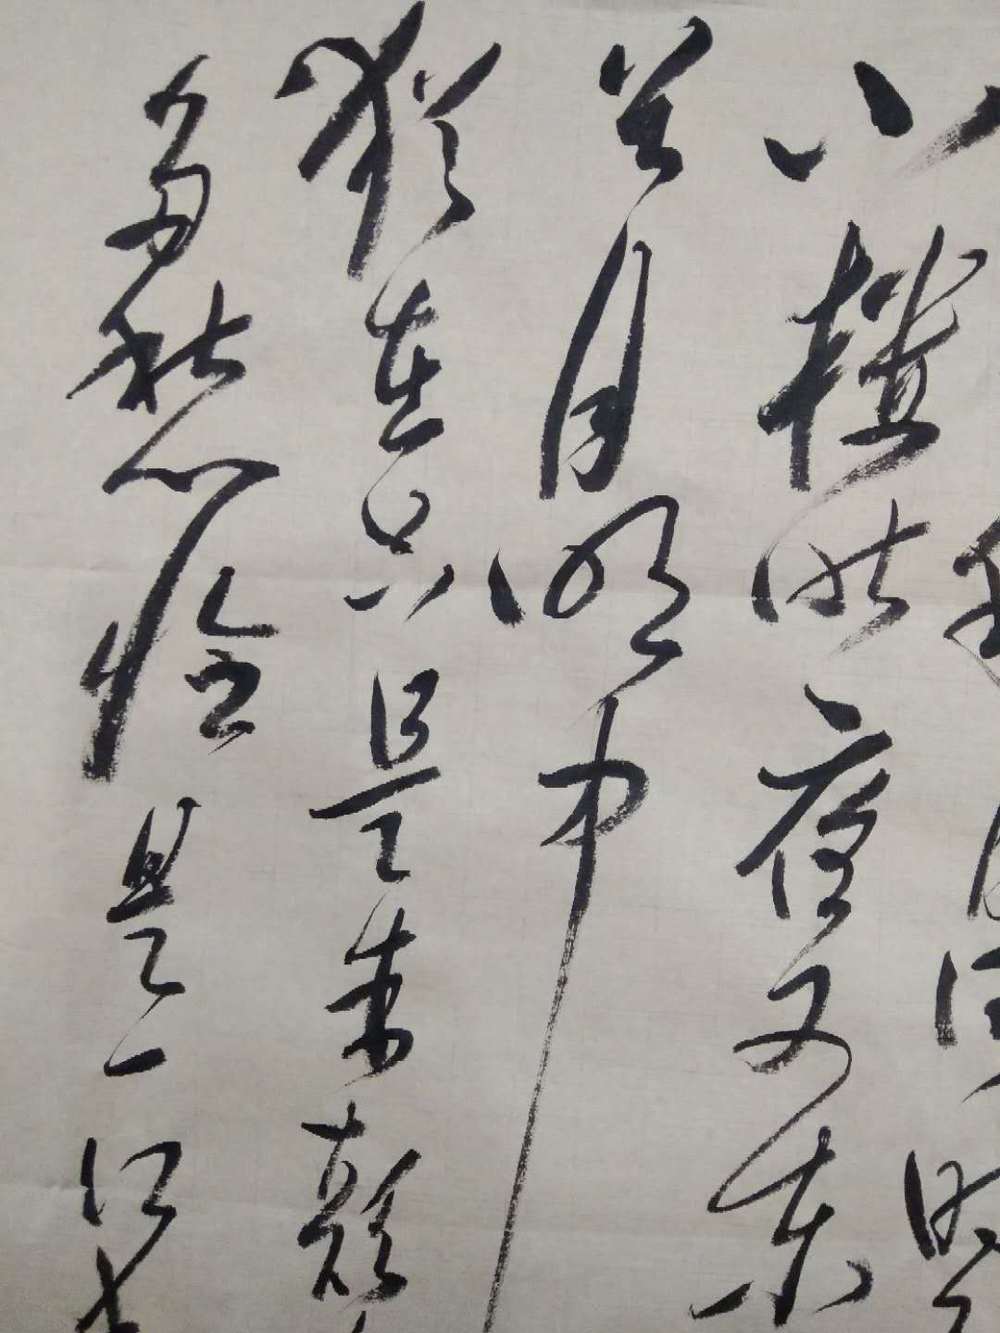 小樓昨夜又東
首月明中
猶在只是朱顏
多愁恰是一江